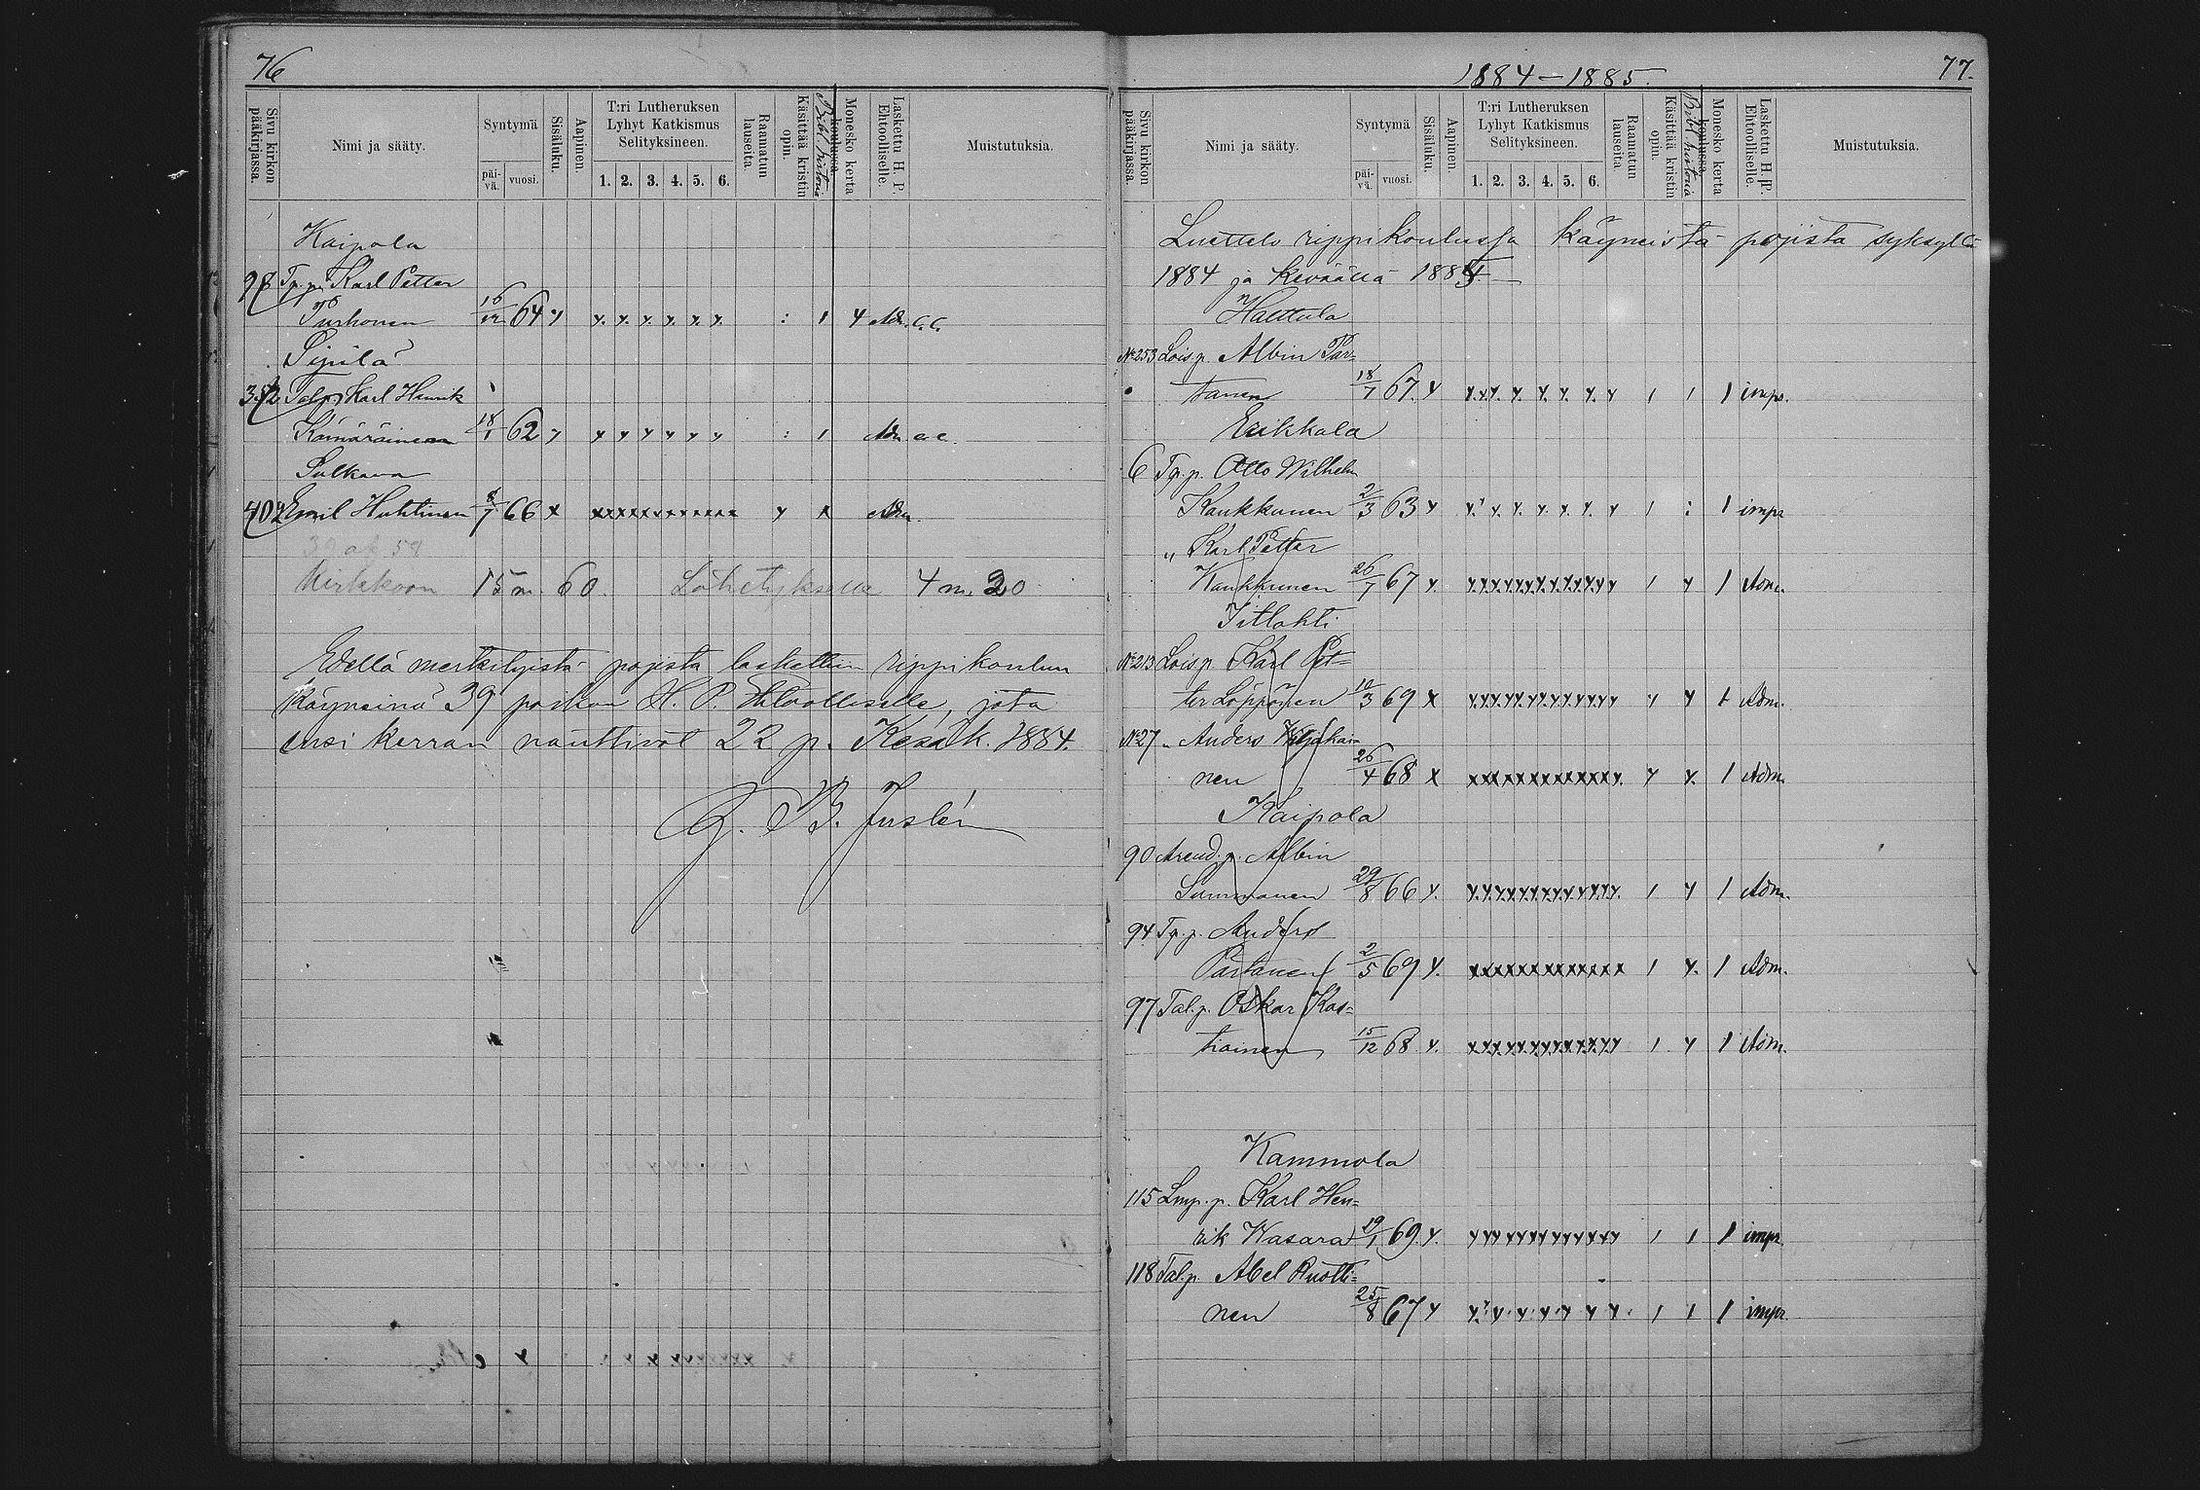 76
Sivu kirkon pääkirjassa.
Nimi ja sääty.
Syntymä
päivä.
vuosi.
Sisäluku.
Aapinen.
T:ri Lutheruksen
Lyhyt Katkismus
Selityksineen.
1. 2. 3. 4. 5. 6.
Raamatun lauseita.
Käsittää kristin opin.
Bibl. historia
Monesko kerta koulussa.
Laskettu H. P. Ehtoolliselle.
Muistutuksia.
Kaipola
98 Tp. p. Karl Petter
Turhonen 16/12 64 y y. y. y. y. y. y. : 1 4 Adm. c. c.
Sipilä
352 Tal. p. Karl Henrik
Kämäräinen 18/1 62 y y y y y y y : 1 Adm c. c.
Sulkava
402 Emil Huhtinen 8/7 66 x xxxxxxxxxxxx y x Adm.
39 af 58
Kirkkoon 15 m. 60. Lähetykselle 4 m. 20
Edellä merkityistä pojista laskettiin rippikoulun
käyneinä 39 poikaa H. P. Ehtoolliselle, jota
ensi kerran nauttivat 22 p. Kesäk. 1884.
G. B. Juslén
1884–1885.
77.
Sivu kirkon pääkirjassa.
Nimi ja sääty.
Syntymä
päivä.
vuosi.
Sisäluku.
Aapinen.
T:ri Lutheruksen
Lyhyt Katkismus
Selityksineen.
1. 2. 3. 4. 5. 6.
Raamatun lauseita.
Käsittää kristin opin.
Bibl. historia
Monesko kerta koulussa.
Laskettu H. P. Ehtoolliselle.
Muistutuksia.
Luettelo rippikoulussa käyneistä pojista syksyllä
1884 ja keväällä 1885.
Haettula
No 253 Lois. p. Albin Par=
tanen 18/7 67. y y.y.y. y y. y. y. y 1 1 1 impr.
Erikkala
6 Tp. p. Otto Wilhelm
Kaukkunen 2/3 63 y y. y. y. y. y. y. y 1 : 1 impr
„ Karl Petter
Kaukkunen 26/7 67 y. yyyyyyyyyyyy 1 y 1 Adm.
Iitlahti
No 213 Lois p. Karl Pet=
ter Löppönen 10/3 69 x yyyyyyyyyyyy y y 1 Adm.
No 27 „ Anders
nen 26/4 68 x xxxxxxxxxxxxy. y y. 1 Adm.
Kaipola
90 Arend. p. Albin
Summanen 29/8 66 y. yyyyyyyyyyyy. 1 y 1 Adm.
94 Tp. p. Anders
Partanen 2/5 69 y. xxxxxxxxxxxx 1 y. 1 Adm.
97 Tal. p. Oskar Kas=
tiainen 15/12 68 y. xyyyyyyyyyyy 1 y 1 Adm.
Kammola
115 Lmp. p. Karl Hen=
rik Wasara 19/1 69. y. yyyyyyyyyyyy 1 1 1 impr.
118 Tal. p. Abel Ruotti=
nen 25/8 67 y y. y. y. y. y y y. 1 1 1 impr.